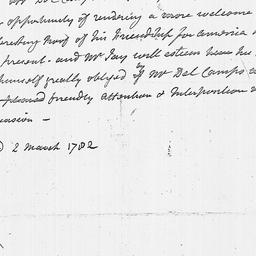 opportunity of rendering a more welcome
Proof of his Friendship for America
present - and Mr Jay will esteem
himself greatly obliged by Mr Del Campo
friendly attention & Interposition
2 March 1782